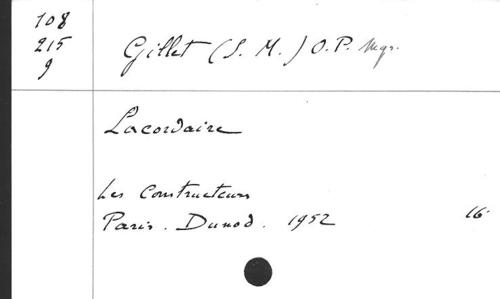 108
215
9
Gillet (S. M.) O.P. Mgr.
Lacordaire
Les Constructeurs
Paris. Dunod. 1952 16.